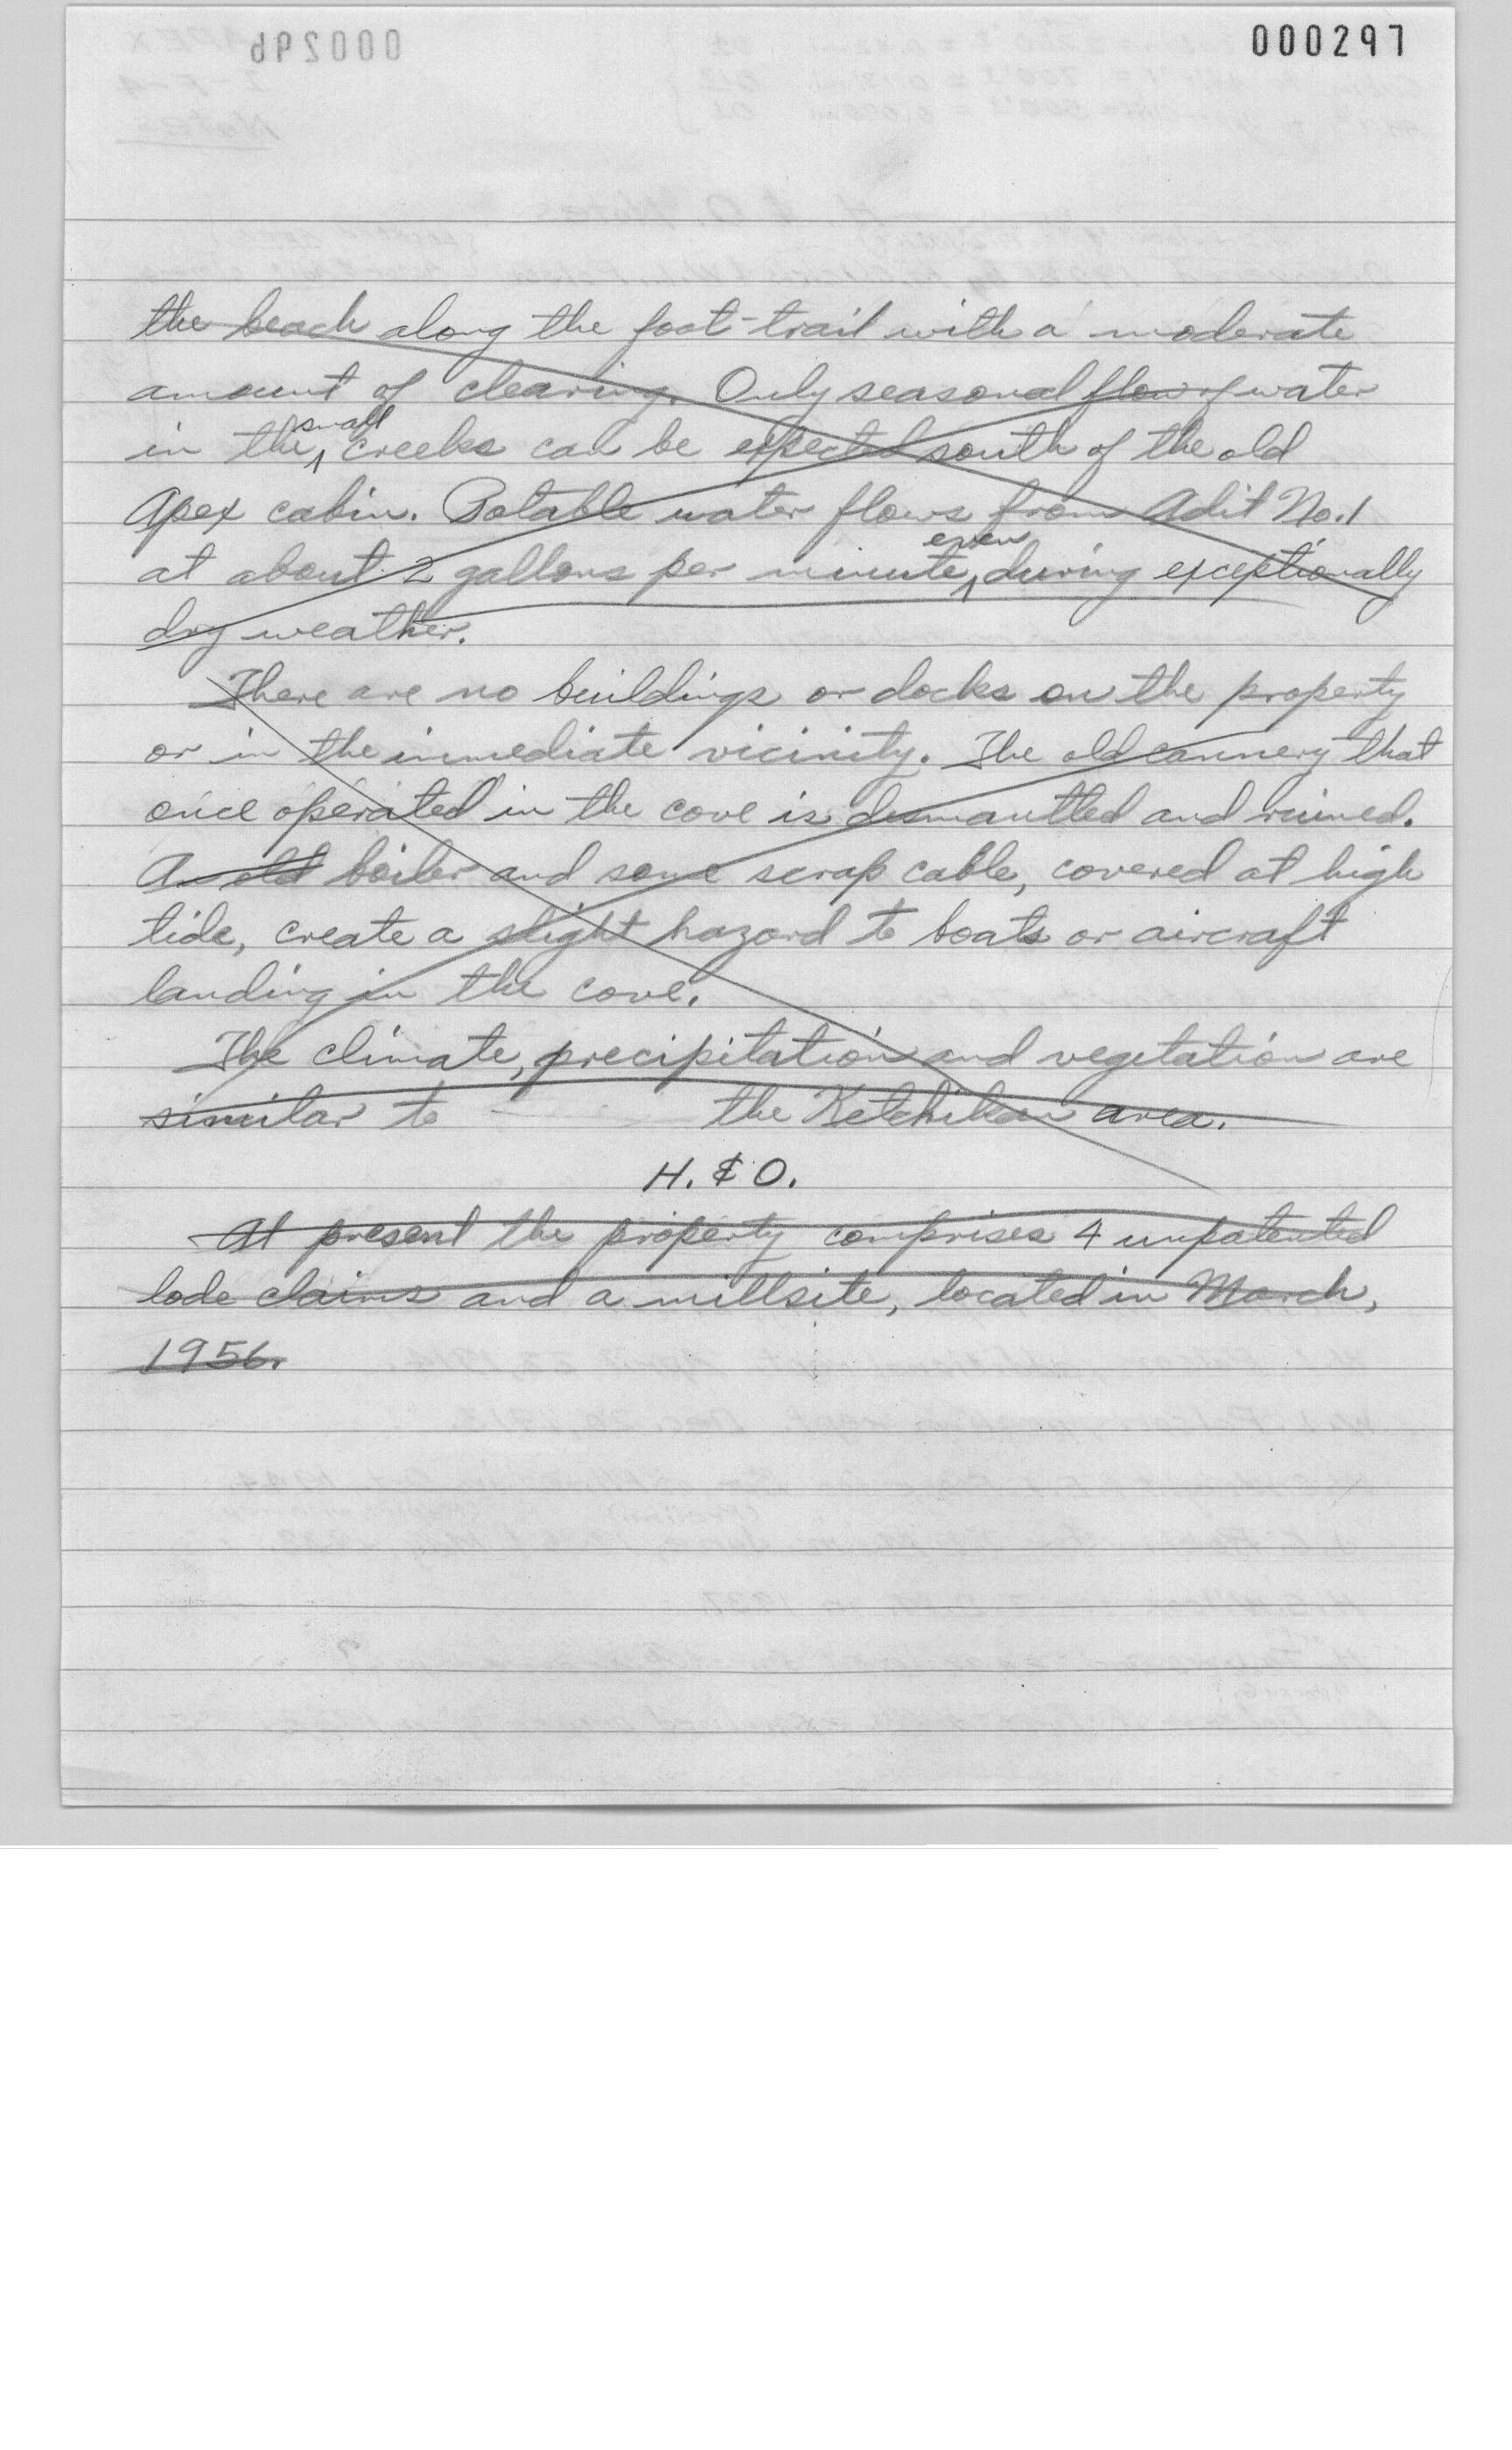 000297
the beach along the foot-trail with a moderate
amount of clearing. Only seasonal flow of water
in the small creeks can be expected south of the old
Apex cabin. Potable water flows from Adit No. 1
at about 2 gallons per minute, even during exceptionally
dry weather.
There are no buildings or docks on the property
or in the immediate vicinity. The old cannery that
once operated in the cove is dismantled and ruined.
A old boiler and some scrap cable, covered at high
tide, create a slight hazard to boats or aircraft
landing in the cove.
The climate, precipitation and vegetation are
similar to the Ketchikan area.
H. & O.
At present the property comprises 4 unpatented
lode claims and a millsite, located in March,
1956.